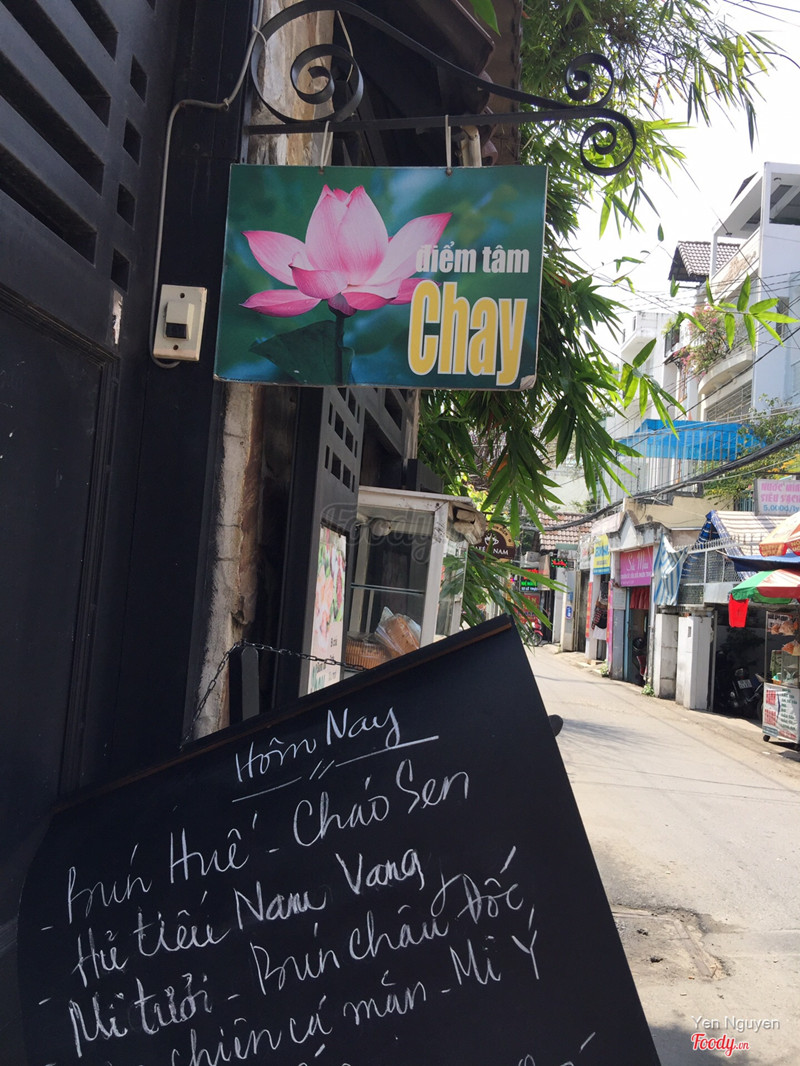 điểm tâm
Chay
Foody
NAM
Hôm Nay
- Bún Huế - Cháo Sen
Hủ tiếu Nam Vang
- Mì tươi - Bún châu Đốc,
chiên cá mắn - Mì Ý
5.000đ/
Yen Nguyen
Foody.vn